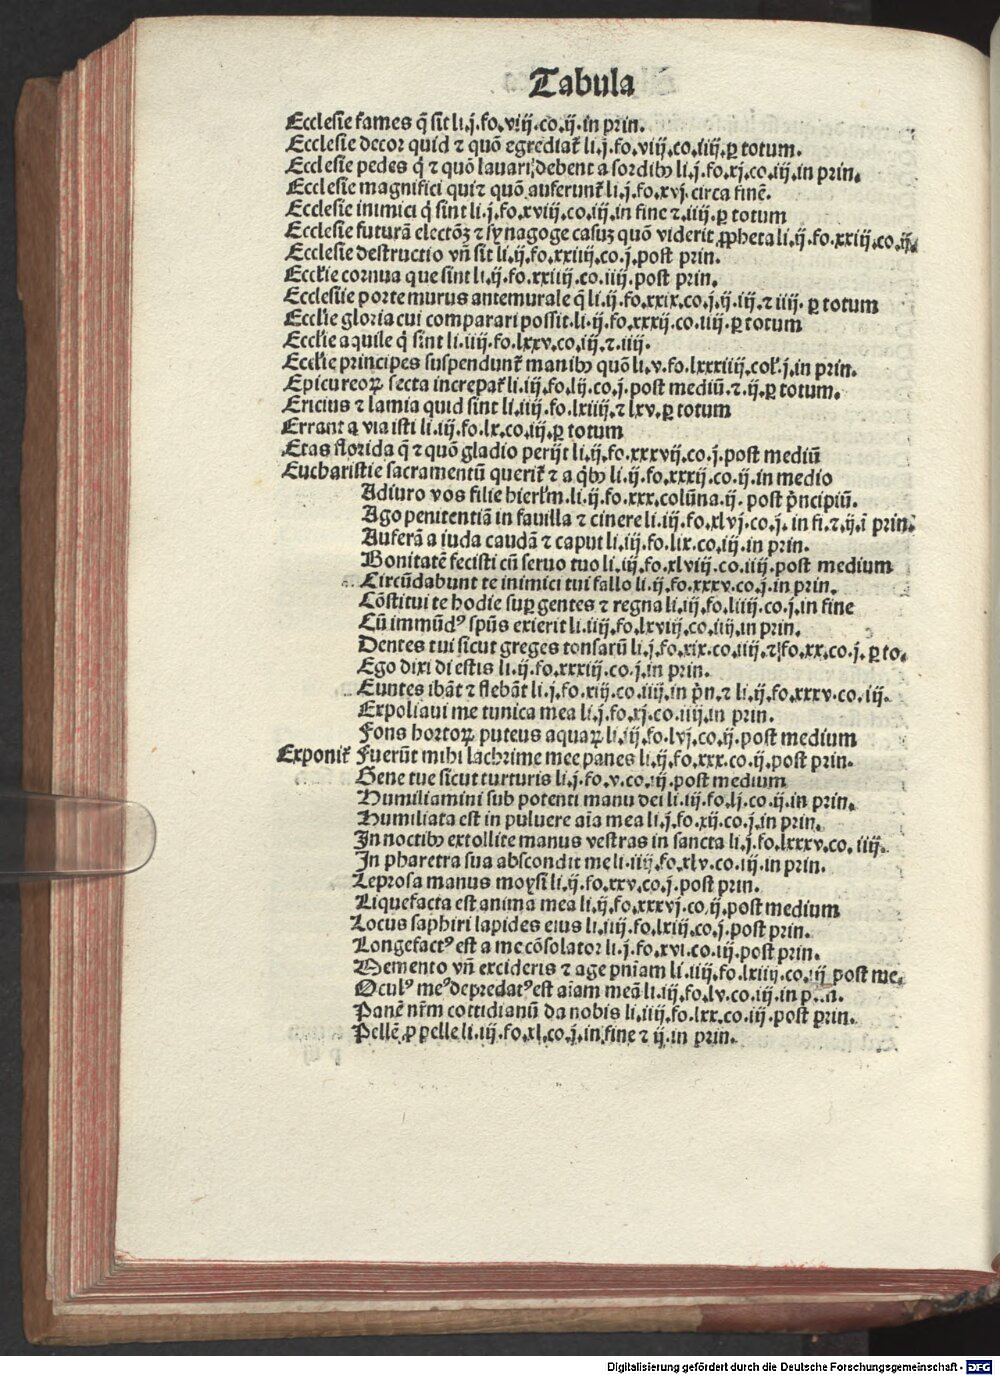 Tabula
Ecclesie fames q̃ sit li.j.fo.viij.co.ij.in prin.
Ecclesie decor quid ⁊ quõ egrediat᷑ li.j.fo.viij.co.iiij.ꝑ totum.
Ecclesie pedes q̃ ⁊ quõ lauari debent a sordibꝰ li.j.fo.xj.co.iij.in prin.
Ecclesie magnifici qui ⁊ quõ auferunt᷑ li.j.fo.xvj.circa finẽ.
Ecclesie inimici q̃ sint li.j.fo.xviij.co.iij.in fine ⁊.iiij.ꝑ totum
Ecclesie futurã electõꝫ ⁊ synagoge casuꝫ quõ viderit ꝓpheta li.ij.fo.xxiij.co.ij.
Ecclesie destructio vñ sit li.ij.fo.xxiiij.co.j.post prin.
Eccl'ie cornua que sint li.ij.fo.xxiiij.co.iiij.post prin.
Ecclesiie porte murus antemurale q̃ li.ij.fo.xxix.co.j.ij.iij.⁊ iiij.ꝑ totum
Eccl'ie gloria cui comparari possit.li.ij.fo.xxxij.co.iiij.ꝑ totum
Eccl'ie aquile q̃ sint li.iiij.fo.lxxv.co.iij.⁊.iiij.
Eccl'ie principes suspendunt᷑ manibꝰ quõ li.v.fo.lxxxiiij.col'.j.in prin.
Epicureoꝝ secta increpat᷑ li.iij.fo.lij.co.j.post mediũ.⁊.ij.ꝑ totum.
Ericius ⁊ lamia quid sint li.iiij.fo.lxiiij.⁊ lxv.ꝑ totum
Errant a via isti li.iij.fo.lx.co.iij.ꝑ totum
Etas florida q̃ ⁊ quõ gladio perijt li.ij.fo.xxxvij.co.j.post mediũ
Eucharistie sacramentũ querit᷑ ⁊ a q̃bꝰ li.ij.fo.xxxij.co.ij.in medio
Adiuro vos filie hierl'm.li.ij.fo.xxx.colũna.ij.post p̃ncipiũ.
Ago penitentiã in fauilla ⁊ cinere li.iij.fo.xlvj.co.j.in fi.⁊.ij.ĩ prin.
Auferã a iuda caudã ⁊ caput li.iij.fo.lix.co.iij.in prin.
Bonitatẽ fecisti cũ seruo tuo li.iij.fo.xlviij.co.iiij.post medium
Circũdabunt te inimici tui fallo li.ij.fo.xxxv.co.j.in prin.
Cõstitui te hodie suꝑ gentes ⁊ regna li.iij.fo.liiij.co.j.in fine
Cũ immũdꝰ spũs exierit li.iiij.fo.lxviij.co.iiij.in prin.
Dentes tui sicut greges tonsarũ li.j.fo.xix.co.iiij.⁊ fo.xx.co.j.ꝑ to.
Ego dixi di estis li.ij.fo.xxxiij.co.j.in prin.
Euntes ibãt ⁊ flebãt li.j.fo.xiij.co.iiij.in p̃n.⁊ li.ij.fo.xxxv.co.iij.
Expoliaui me tunica mea li.j.fo.xj.co.iiij.in prin.
Fons hortoꝝ puteus aquaꝝ li.iij.fo.lvj.co.ij.post medium
Exponit᷑ Fuerũt mihi lachrime mee panes li.ij.fo.xxx.co.ij.post prin.
Gene tue sicut turturis li.j.fo.v.co.iij.post medium
Humiliamini sub potenti manu dei li.iij.fo.lj.co.ij.in prin.
Humiliata est in puluere aĩa mea li.j.fo.xij.co.j.in prin.
In noctibꝰ extollite manus vestras in sancta li.j.fo.lxxxv.co.iiij.
In pharetra sua abscondit me li.iiij.fo.xlv.co.iij.in prin.
Leprosa manus moysi li.ij.fo.xxv.co.j.post prin.
Liquefacta est anima mea li.ij.fo.xxxvj.co.ij.post medium
Locus saphiri lapides eius li.iiij.fo.lxiij.co.j.post prin.
Longefactꝰ est a me cõsolator li.j.fo.xvi.co.iij.post prin.
Memento vñ excideris ⁊ age pniam li.iiij.fo.lxiiij.co.iij post me.
Oculꝰ meꝰ depredatꝰ est aĩam meã li.iij.fo.lv.co.iij.in
Panẽ nr̃m cottidianũ da nobis li.iiij.fo.lxx.co.iij.post prin.
Pellẽ ꝓ pelle li.iij.fo.xl.co.j.in fine ⁊ ij.in prin.
Digitalisierung gefördert durch die Deutsche Forschungsgemeinschaft - DFG